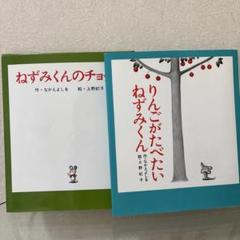 ねずみくんのチョ
作・なかえよしを 絵・上野紀子
りんごがたべたい
ねずみくん
作・なかえよしを
絵・上野紀子